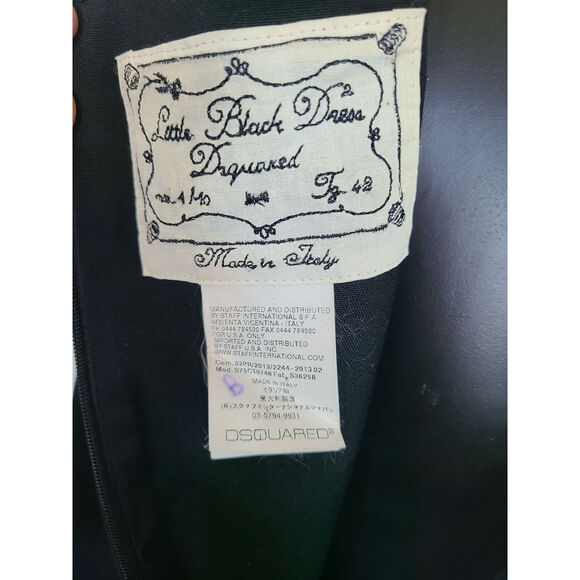 Little Black Dress²
Dsquared
no. 4/40 Tg. 42
Made in Italy
MANUFACTURED AND DISTRIBUTED
BY STAFF INTERNATIONAL S.P.A.
NOVENTA VICENTINA - ITALY
PH 0444 784500 FAX 0444 784580
FOR U.S.A. ONLY
IMPORTED AND DISTRIBUTED
BY STAFF U.S.A. INC
WWW.STAFFINTERNATIONAL.COM
Com. 02PR/2013/2244 - 2013 02
Mod. S75CT0748 Fab. S36258
MADE IN ITALY
イタリア製
意大利製造
(株)スタッフインターナショナルジャパン
03-5794-9931
DSQUARED²